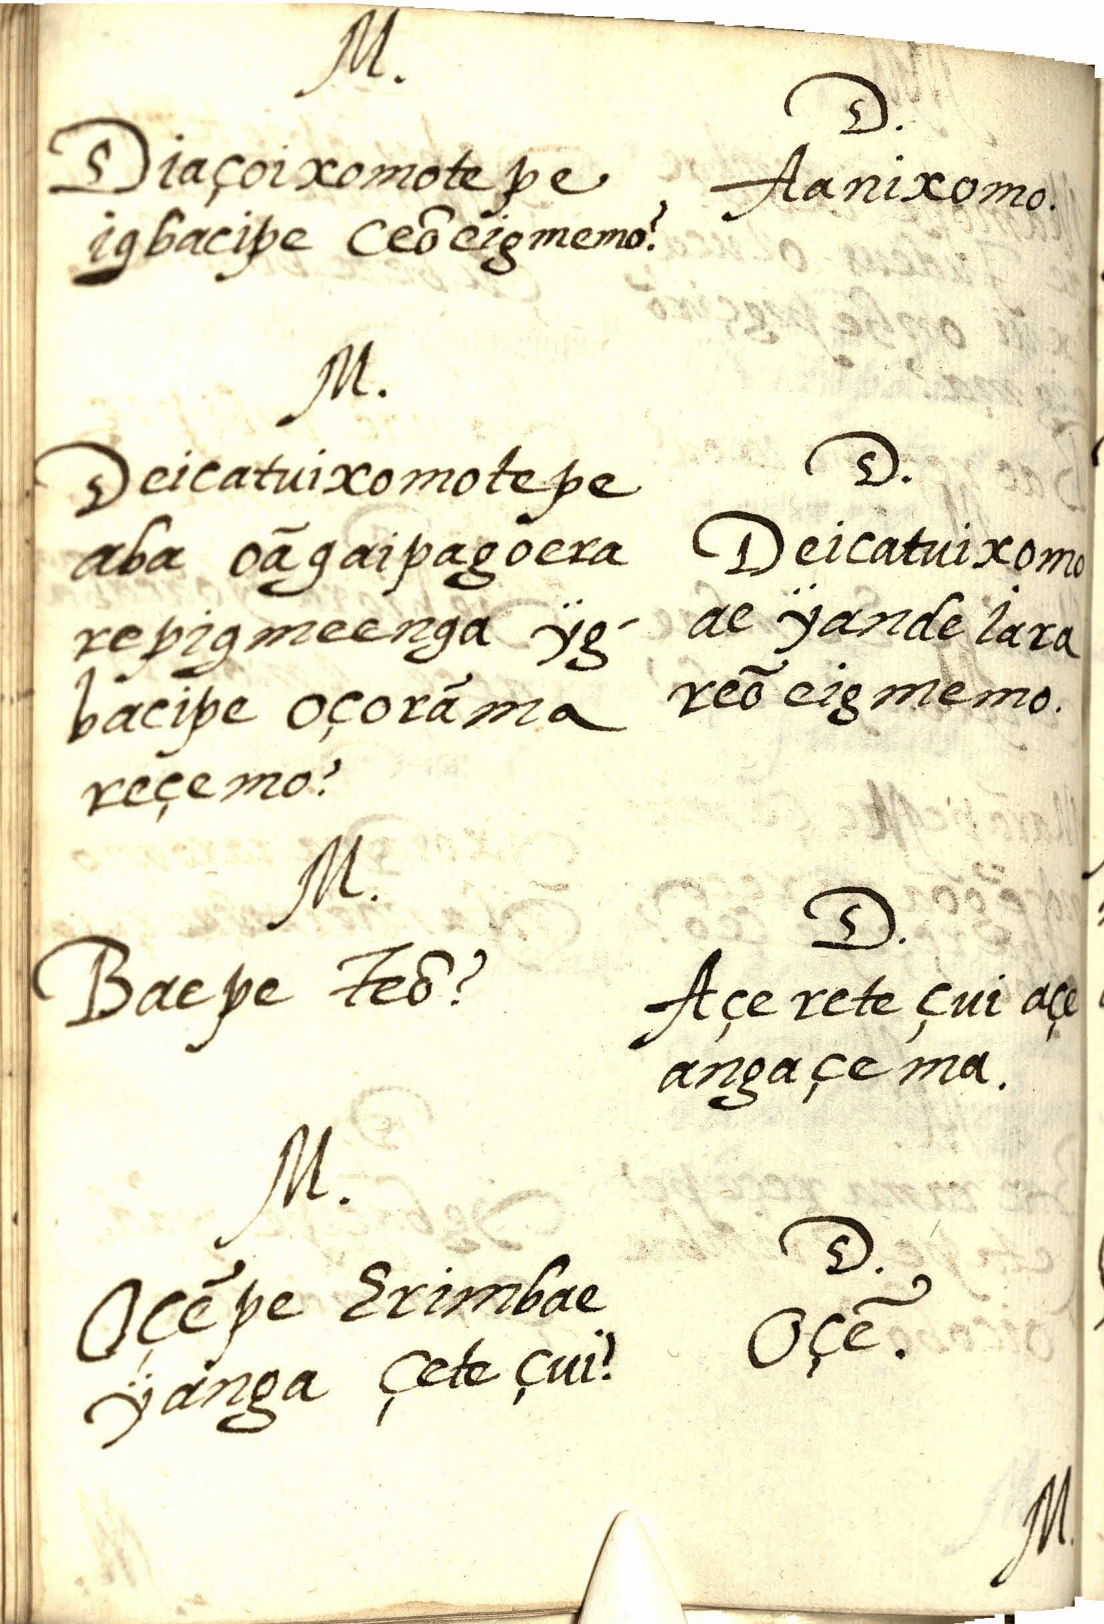 M.
Diaçoixomotepe
igbacipe Ceõeigmemo?
D.
Aanixomo.
M.
Deicatuixomotepe
aba oãgaipagõera
repigmeenga ÿg-
bacipe oçorãma
reçemo?
D.
Deicatuixomo
ae ÿande Iara
reõ eigmemo.
M.
Baepe Teõ?
D.
Açe rete çui açe
angaçe ma.
M.
Oçẽpe Erimbae
ÿanga çete çui?
D.
Oçẽ.
M.